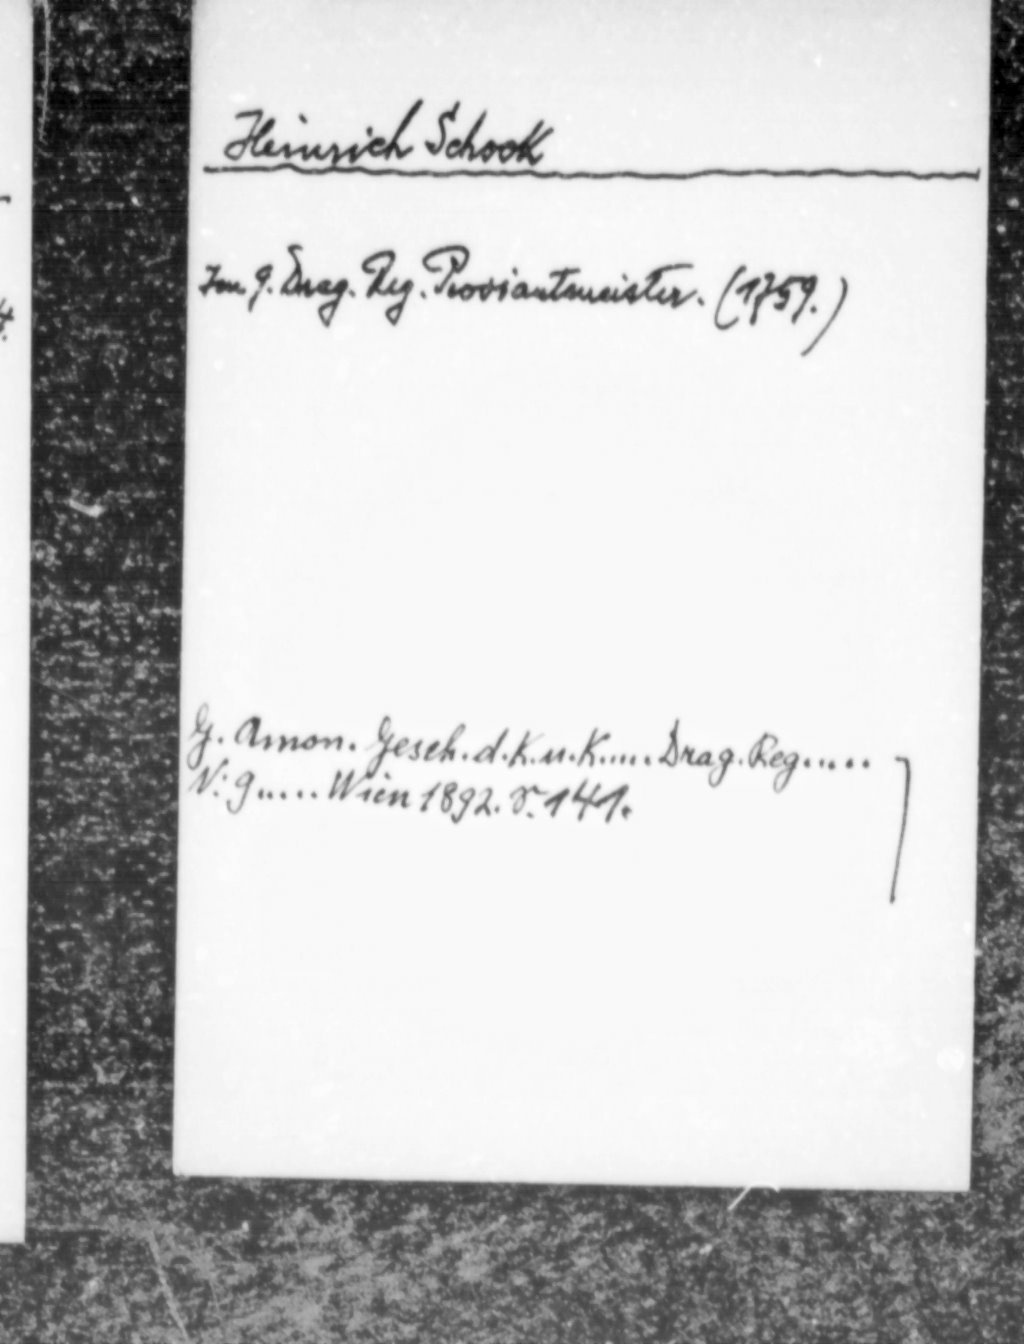 Heinrich Schook
Im 9. Drag. Reg. Proviantmeister. (1759.)
G. Amon. Gesch. d. K. u. K. .... Drag. Reg.....
N: 9..... Wien 1892. S. 141.
4.